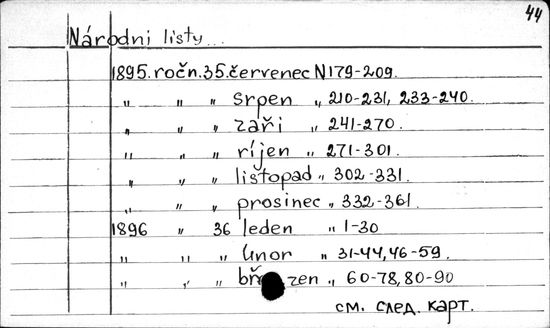 44
Národni listy...
1895. ročn. 35. červenec N179-209.
" " " srpen " 210-231, 233-240.
" " " zaři " 241-270.
" " " ríjen " 271-301.
" " " listopad " 302-331.
" " " prosinec " 332-361.
1896 " 36 leden " 1-30
" " " únor " 31-44, 46-59.
" " " březen " 60-78, 80-90
см. след. карт.